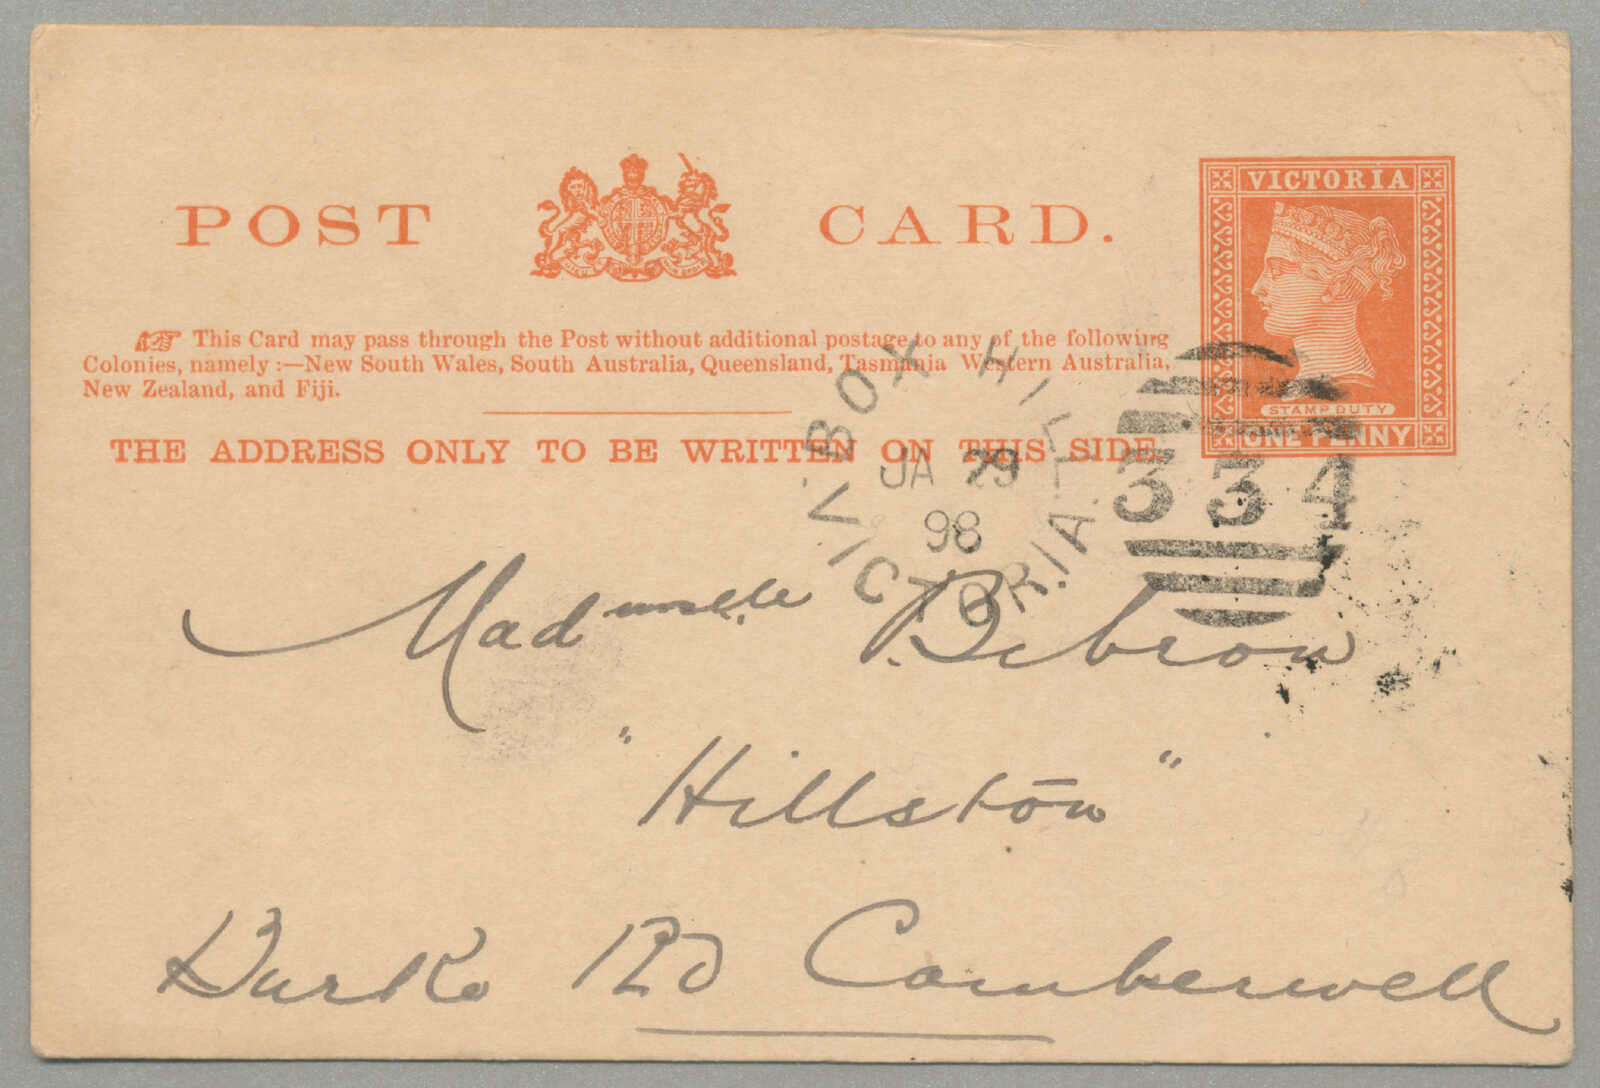 POST CARD.
VICTORIA
☞ This Card may pass through the Post without additional postage to any of the following
Colonies, namely :—New South Wales, South Australia, Queensland, Tasmania Western Australia,
New Zealand, and Fiji.
STAMP DUTY
ONE PENNY
THE ADDRESS ONLY TO BE WRITTEN ON THIS SIDE.
BOX HILL
JA 29
98
VICTORIA
334
Madmselle. Bibron
"Hillston"
Burke Rd Camberwell